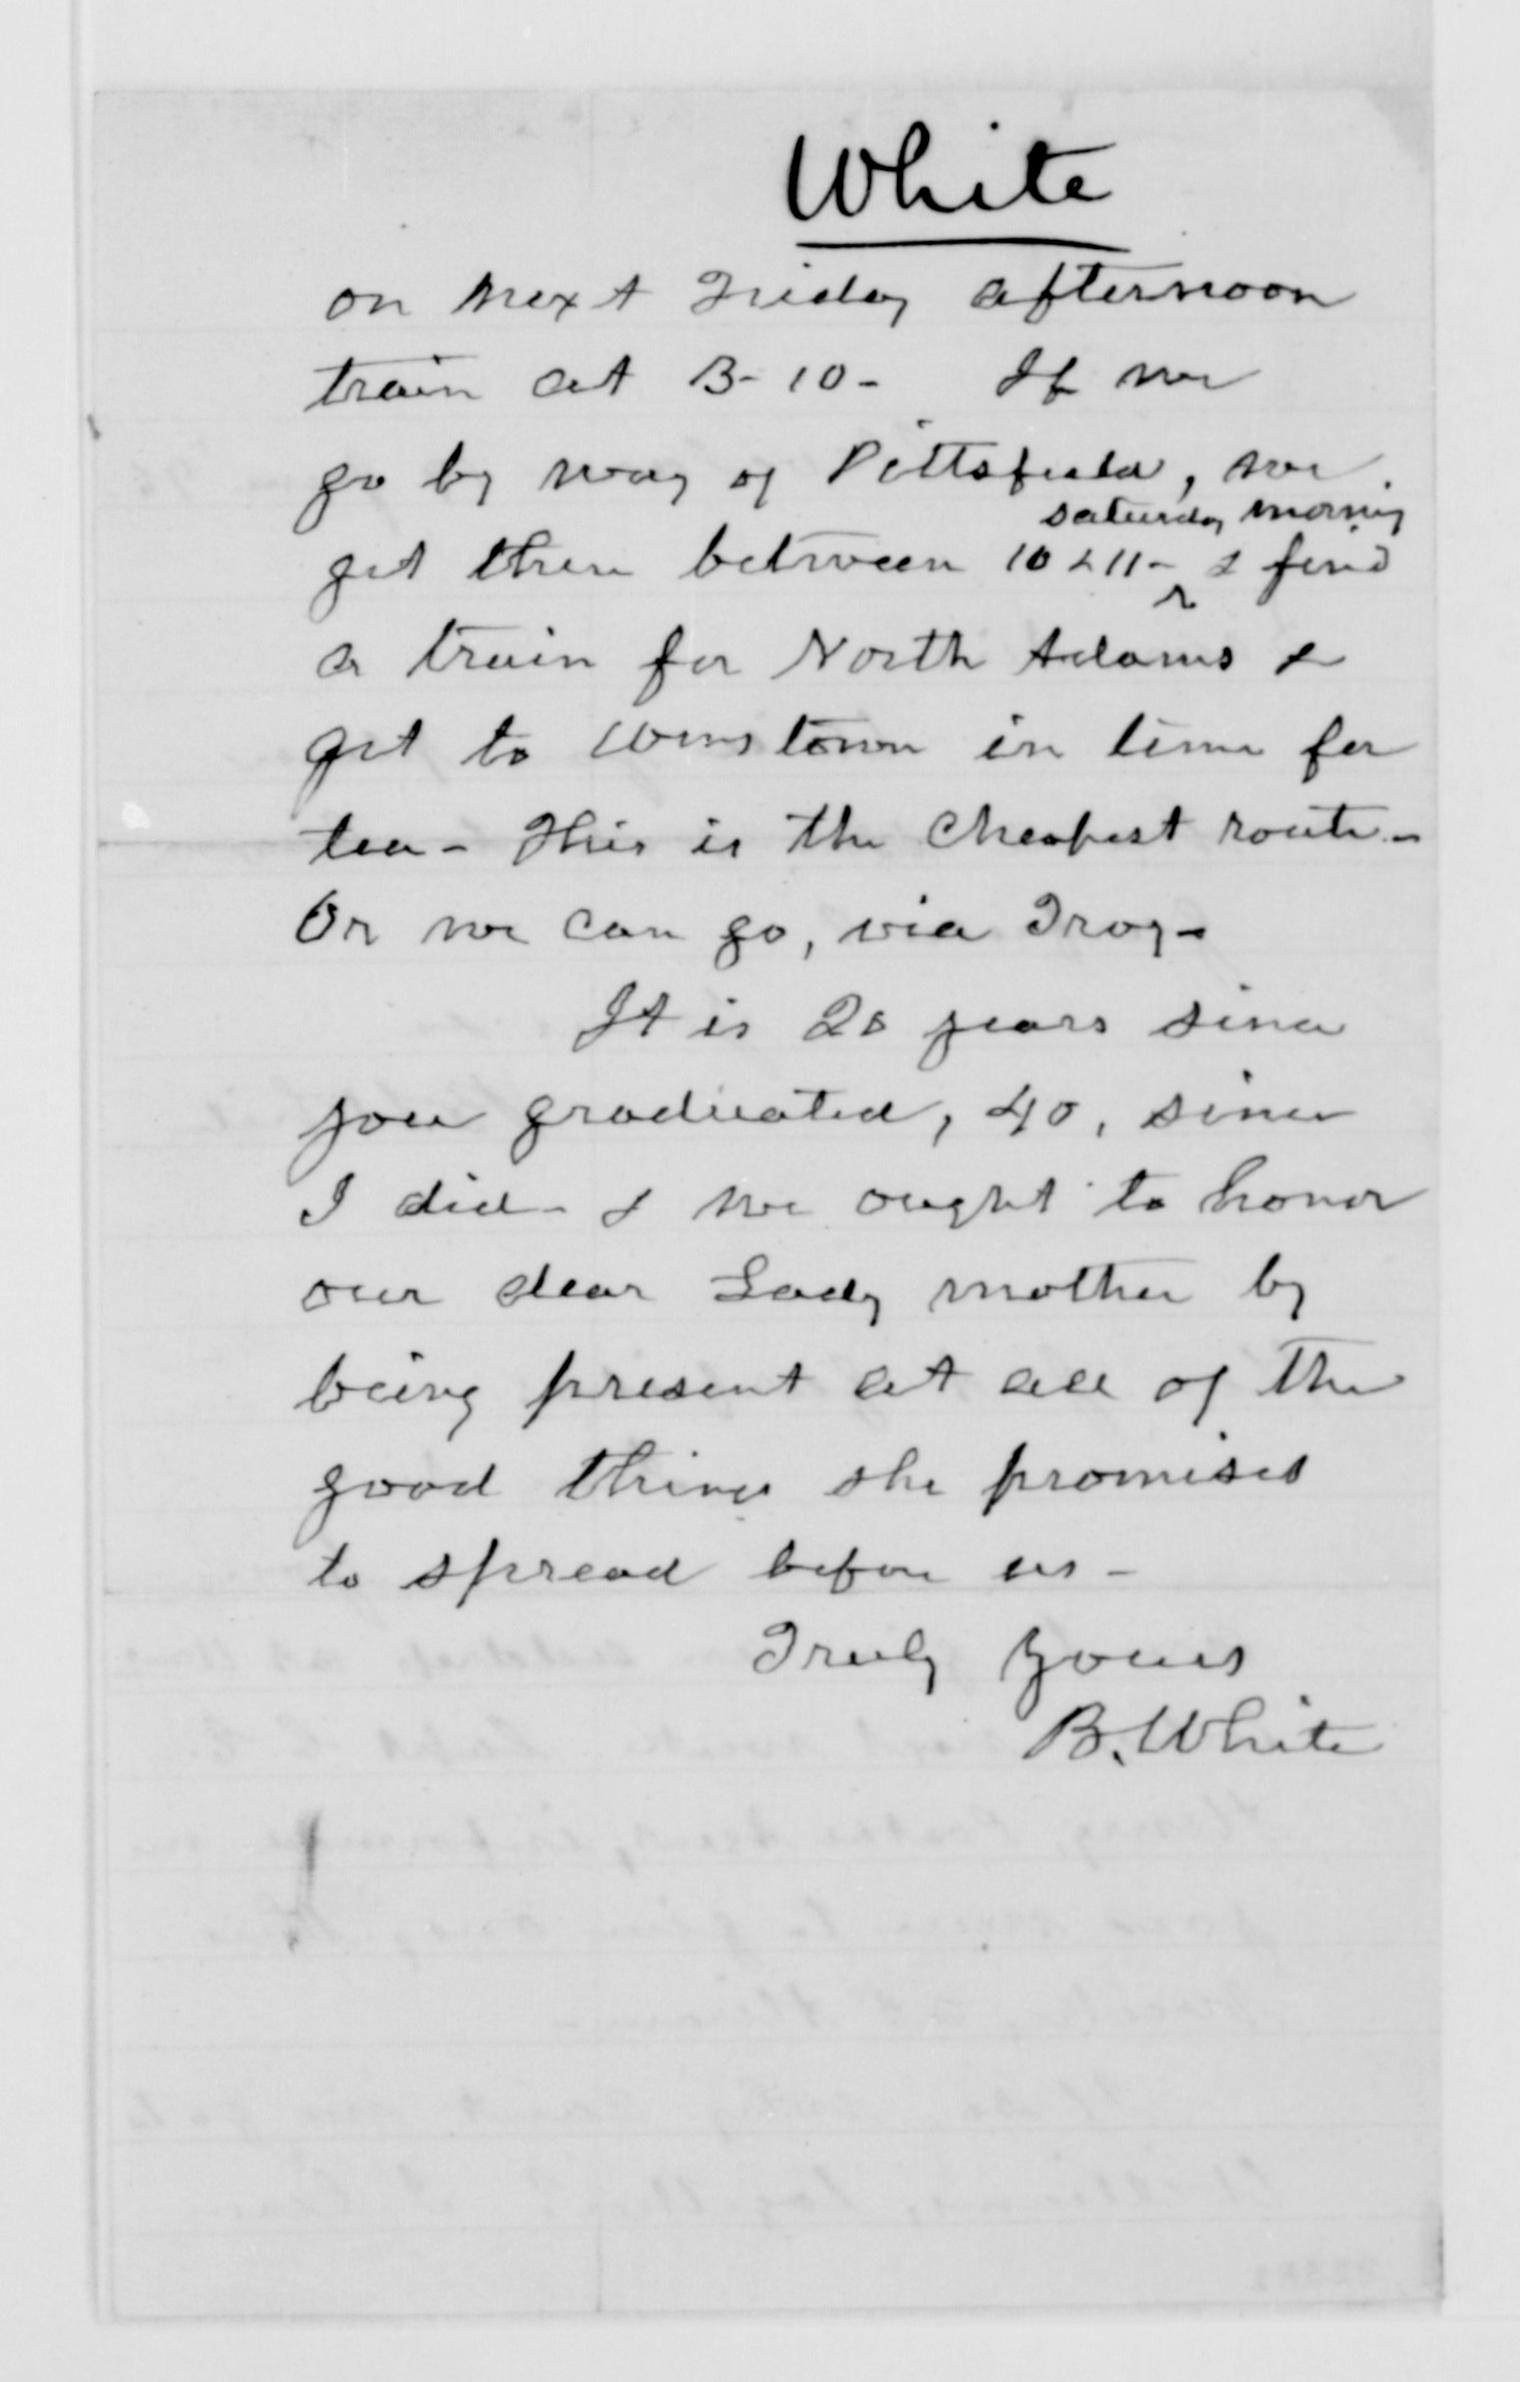 White
on next Friday afternoon
train at 3-10- If we
go by way of Pittsfield, we
saturday morning
get there between 10 & 11- & find
a train for North Adams &
get to Wmstown in time for
tea- This is the cheapest route-
Or we can go, via Troy-
It is 20 years since
you graduated, 40, since
I did- & we ought to honor
our dear Lady mother by
being present at all of the
good things she promises
to spread before us-
Truly yours
B. White